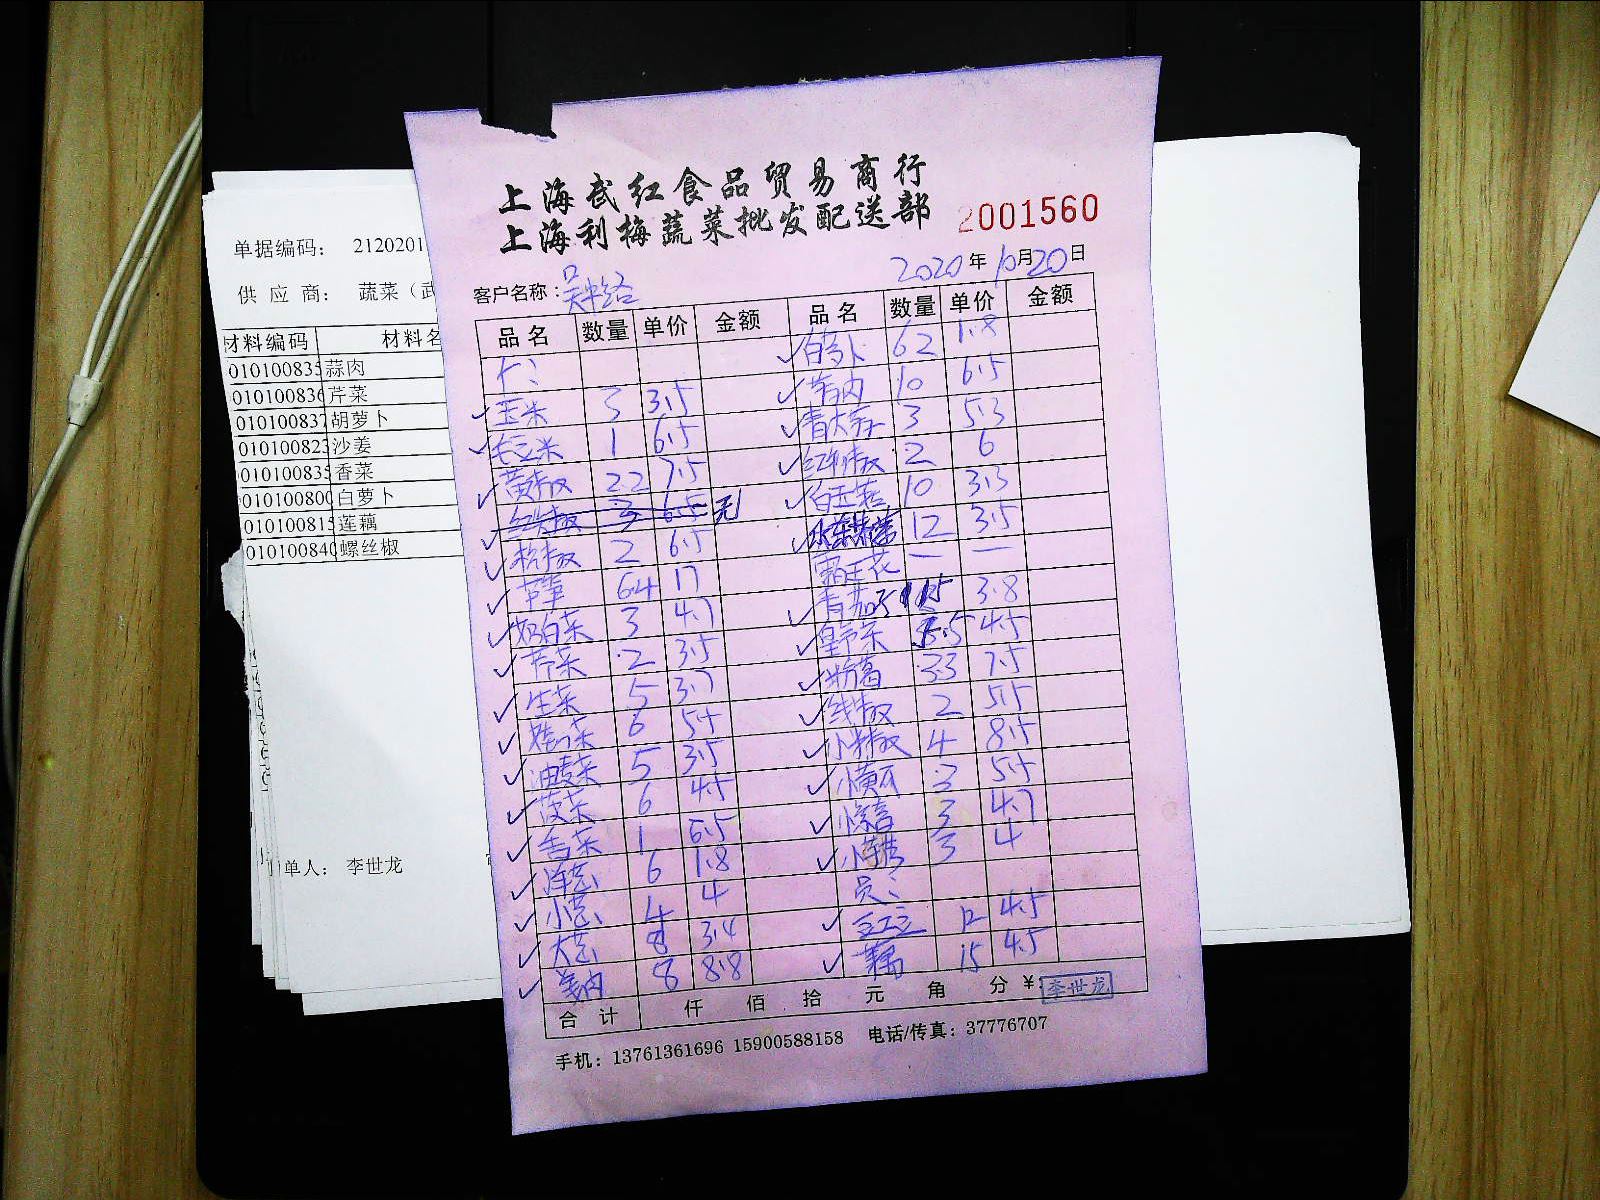 上海武红食品贸易商行
上海利梅蔬菜批发配送部
2001560
2020年10月20日
客户名称：
品名 数量 单价 金额 品名 数量 单价 金额
白萝卜 62 1.8
玉米 3 3.5 10 6.5
毛豆米 1 6.5 3 5.3
黄椒 22 7.5 2 6
红尖椒 3 6.5 无 白玉菇 10 3.3
2 6.5 12 3.5
芦笋 64 17 霸王花 — —
奶白菜 3 4.7 青茄 3.8
芹菜 2 3.5 4.5
生菜 5 3.7 粉葛 33 7.5
6 5.5 线椒 2 5.5
油麦菜 5 3.5 小米椒 4 8.5
菠菜 6 4.5 小黄瓜 2 5.5
香菜 1 6.5 3 4.7
洋葱 6 1.8 3 4
小葱 4 4
大葱 8 3.4 豇豆 12 4.5
姜肉 8 8.8 藕 15 4.5
合计 仟 佰 拾 元 角 分 ¥:
李世龙
手机：13761361696 15900588158 电话/传真：37776707
单据编码： 2120201
供应商： 蔬菜（武
材料编码 材料名
010100835 蒜肉
010100836 芹菜
010100837 胡萝卜
010100823 沙姜
010100835 香菜
010100800 白萝卜
010100815 莲藕
010100840 螺丝椒
单人： 李世龙